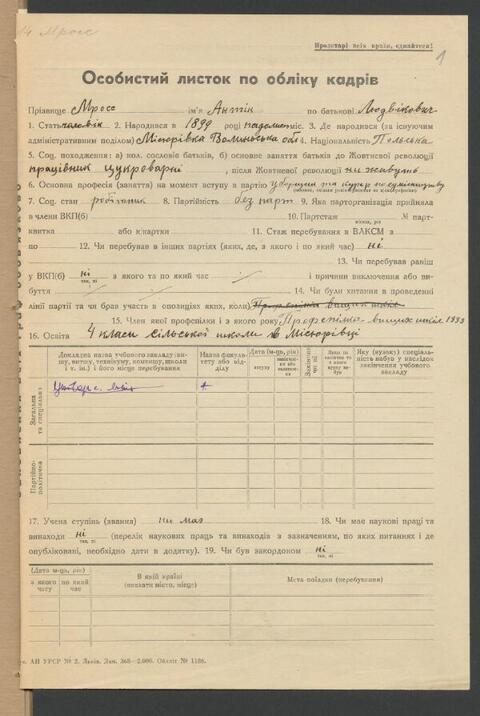 Мросс
Пролетарі всіх країн, єднайтеся!
1
Особистий листок по обліку кадрів
Прізвище Мросс ім'я Антін по батькові Людвікович
1. Стать чоловік 2. Народився в 1899 році падолист міс. 3. Де народився (за існуючим
адміністративним поділом) Місюрівка Волинська обл 4. Національність Польська
5. Соц. походження: а) кол. сословіє батьків, б) основне заняття батьків до Жовтневої революції
працівник цукроварні, після Жовтневої революції не живуть
6. Основна професія (заняття) на момент вступу в партію уборщик та курєр по сумісництву
7. Соц. стан робітник 8. Партійність без парт 9. Яка парторганізація прийняла
в члени ВКП(б) 10. Партстаж М парт-
місяць, рік
квитка або к/картки 11. Стаж перебування в ВЛКСМ з
по 12. Чи перебував в інших партіях (яких, де, з якого і по який час) ні
13. Чи перебував раніш
у ВКП(б) ні з якого та по який час / і причини виключення або ви-
так, ні
буття / 14. Чи були хитання в проведенні
лінії партії та чи брав участь в опозиціях яких, коли) Професпілка вищих шкіл
15. Член якої профспілки і з якого року Професпілка вищих шкіл 1939
16. Освіта 4 класи сільської школи в Місюрівці
Докладна назва учбового закладу (ви-
шу, втишу, технікуму, комвишу, школи
і т. ін.) і його місце перебування
Назва факуль-
тету або від-
ділу
Дата (м-ць, рік)
вступу
Закінчив чи ні
Яку (вузьку) спеціаль-
ність набув в наслідок
закінчення учбового
закладу
Загальна та спеціальна
Партійно-політична
17. Учена ступінь (звання) не має 18. Чи має наукові праці та
винаходи ні (перелік наукових праць та винаходів з зазначенням, по яких питаннях і де
так, ні
опубліковані, необхідно дати в додатку). 19. Чи був закордоном ні
так, ні
(Дата м-ць, рік)
з якого часу
по який час
В якій країні
(вказати місто, місце)
Мета поїздки (перебування)
АН УРСР № 2. Львів. Зам. 368—2.000. Обліт № 1186.